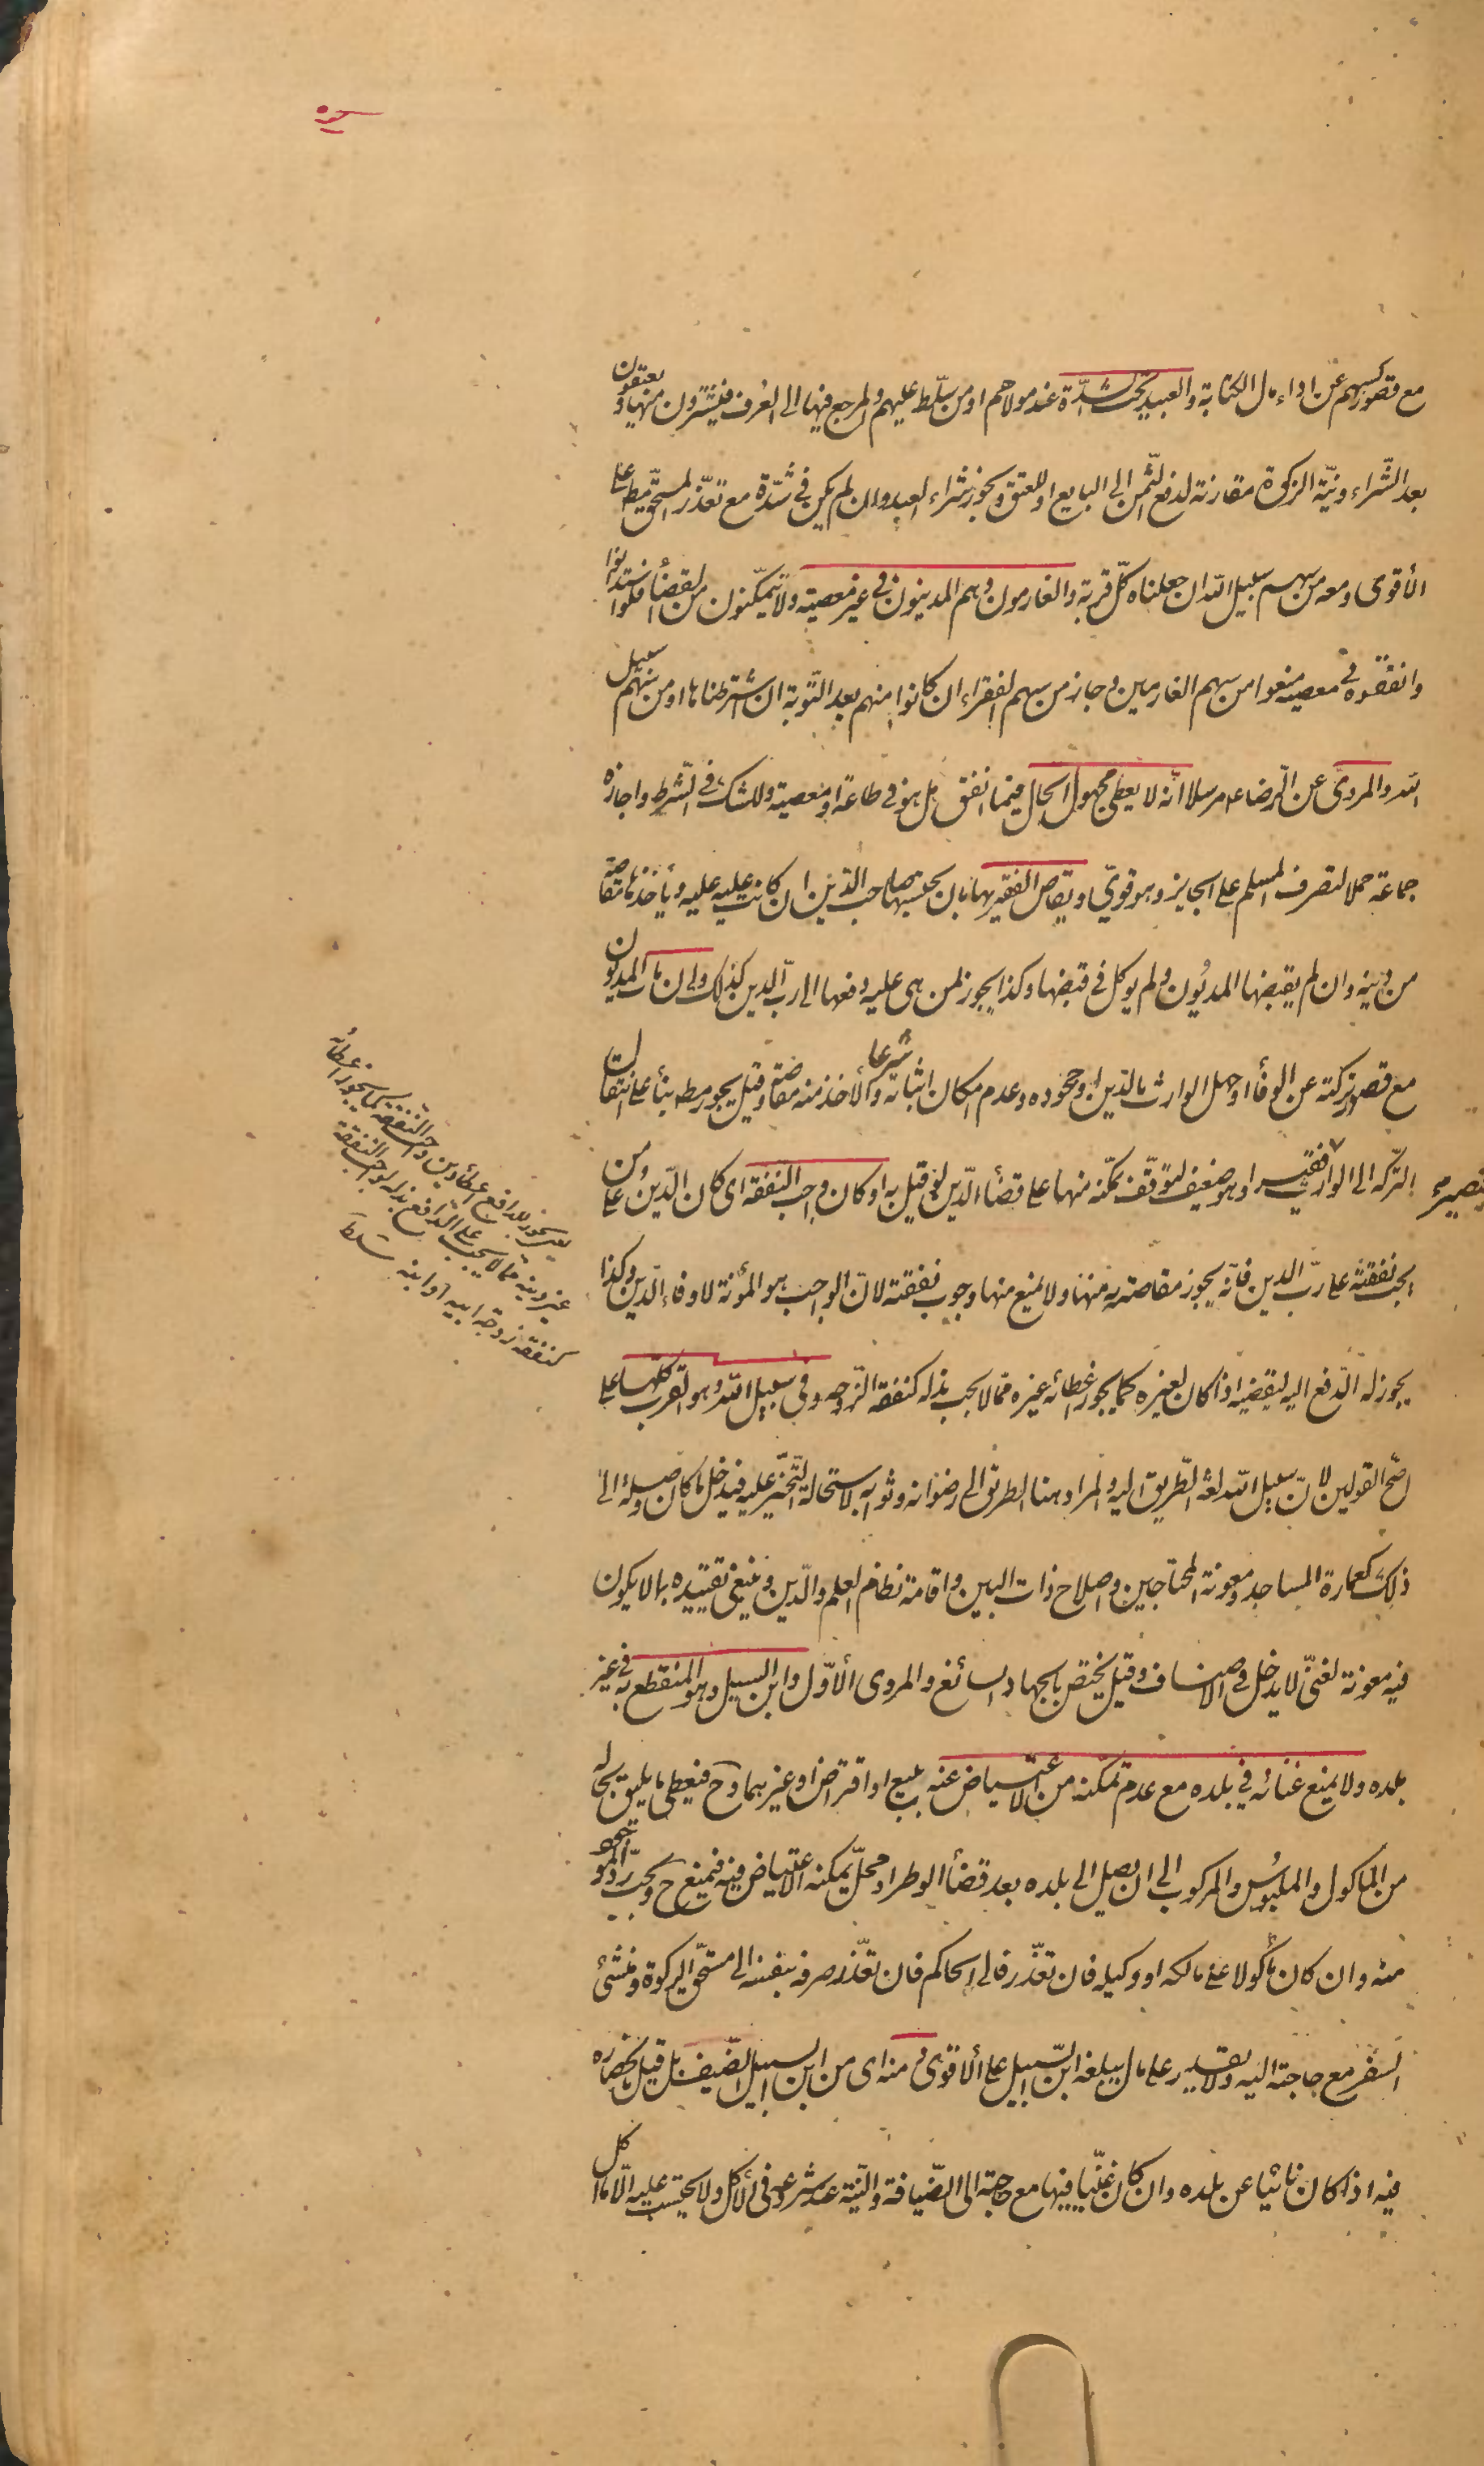 مع قصور كسبهم عن اداء مال الكتابة والعبيد تحت الشدّة عند مولاهم او من سلّط عليهم والمرجع فيها الى العرف فيشترون منها ويعتقون
بعد الشّراء ونيّة الزكوة مقارنة لدفع الثّمن الى البايع او للعتق ويجوز شراء العبد وان لم يكن فى شدّة مع تعذّر المستحق مط على
الأقوى ومعه من سهم سبيل الله ان جعلناه كلّ قربة والغارمون وهم المدينون فى غير معصية ولا يتمكّنون من القضأ فلو استدانوا
وانفقوه فى معصية منعوا من سهم الغارمين وجاز من سهم الفقراء ان كانوا منهم بعد التّوبة ان اشترطناها او من سهم سبيل
الله والمروىّ عن الرّضا ع مرسلا انّه لا يعطى مجهول الحال فيما انفق هل هو فى طاعة او معصية وللشك فى الشرط واجازه
جماعة حملا لتصرف المسلم على الجايز وهو قوىّ ويقاصّ الفقير بها بان يحتسبها صاحب الدّين ان كانت عليه عليه ويأخذها مقاصّة
من دينه وان لم يقبضها المديون ولم يوكل فى قبضها وكذا يجوز لمن هى عليه دفعها الى ربّ الدين كذلك وان مات المديون
مع قصور تركته عن الوفأ او جهل الوارث بالدّين او جحوده وعدم امكان اثباته شرعا والأخذ منه مقاصّة وقيل يجوز مط بنأ على انتقال
التّركة الى الوارث فيصير فقيرا وهو ضعيف لتوقّف تمكّنه منها على قضأ الدّين لو قيل به او كان واجب النّفقة اى كان الدّين على من
يجب نفقته على ربّ الدين فانّه يجوز مقاصته به منها ولا يمنع منها وجوب نفقته لانّ الواجب هو المؤنة لا وفاء الدّين وكذا
يجوز له الدّفع اليه ليقضيه اذا كان لغيره كما يجوز اعطائه غيره ممّا لا يجب بذله كنفقة الزّوجه وفى سبيل الله وهو القرب كلّها على
اصّح القولين لانّ سبيل الله لغة الطّريق اليه والمراد هنا الطريق الى رضوانه وثوابه لاستحالة التّحيّز عليه فيدخل ما كان وصلة الى
ذلك كعمارة المساجد ومعونة المحتاجين واصلاح ذات البين واقامة نظام العلم والدّين وينبغى تقييده بما لا يكون
فيه معونة لغنىّ لا يدخل فى الاصناف وقيل يختص بالجهاد السائغ والمروى الأوّل وابن السبيل وهو المنقطع به فى غير
بلده ولا يمنع غنائه فى بلده مع عدم تمكّنه من الاعتياض عنه ببيع او اقتراض او غيرهما وح فيعطى ما يليق بحاله
من المأكول والملبوس والمركوب الى ان يصل الى بلده بعد قضأ الوطر او محلّ يمكنه الاعتياض فيه فيمنع ح ويجب ردّ الموجود
منه وان كان مأكولا على مالكه او وكيله فان تعذّر فالى الحاكم فان تعذّر صرفه بنفسه الى مستحق الزكوة ومنشئ
السّفر مع حاجته اليه ولا يقدر على مال يبلغه ابن السّبيل على الأقوى ومنه اى من ابن السبيل الضّيف بل قيل بانحصاره
فيه اذا كان نائيا عن بلده وان كان غنّيا فيها مع حاجته الى الضّيافة والنّية عند شروعه فى الأكل ولا يحتسب عليه الّا ما اكل
يعنى يجوز للدافع اعطأ دين واجب النّفقة كما يجوز اعطائه
غير دينه ممّا لا يجب على الدّافع بذله لواجب النفقة
كنفقة زوجة ابيه او ابنه